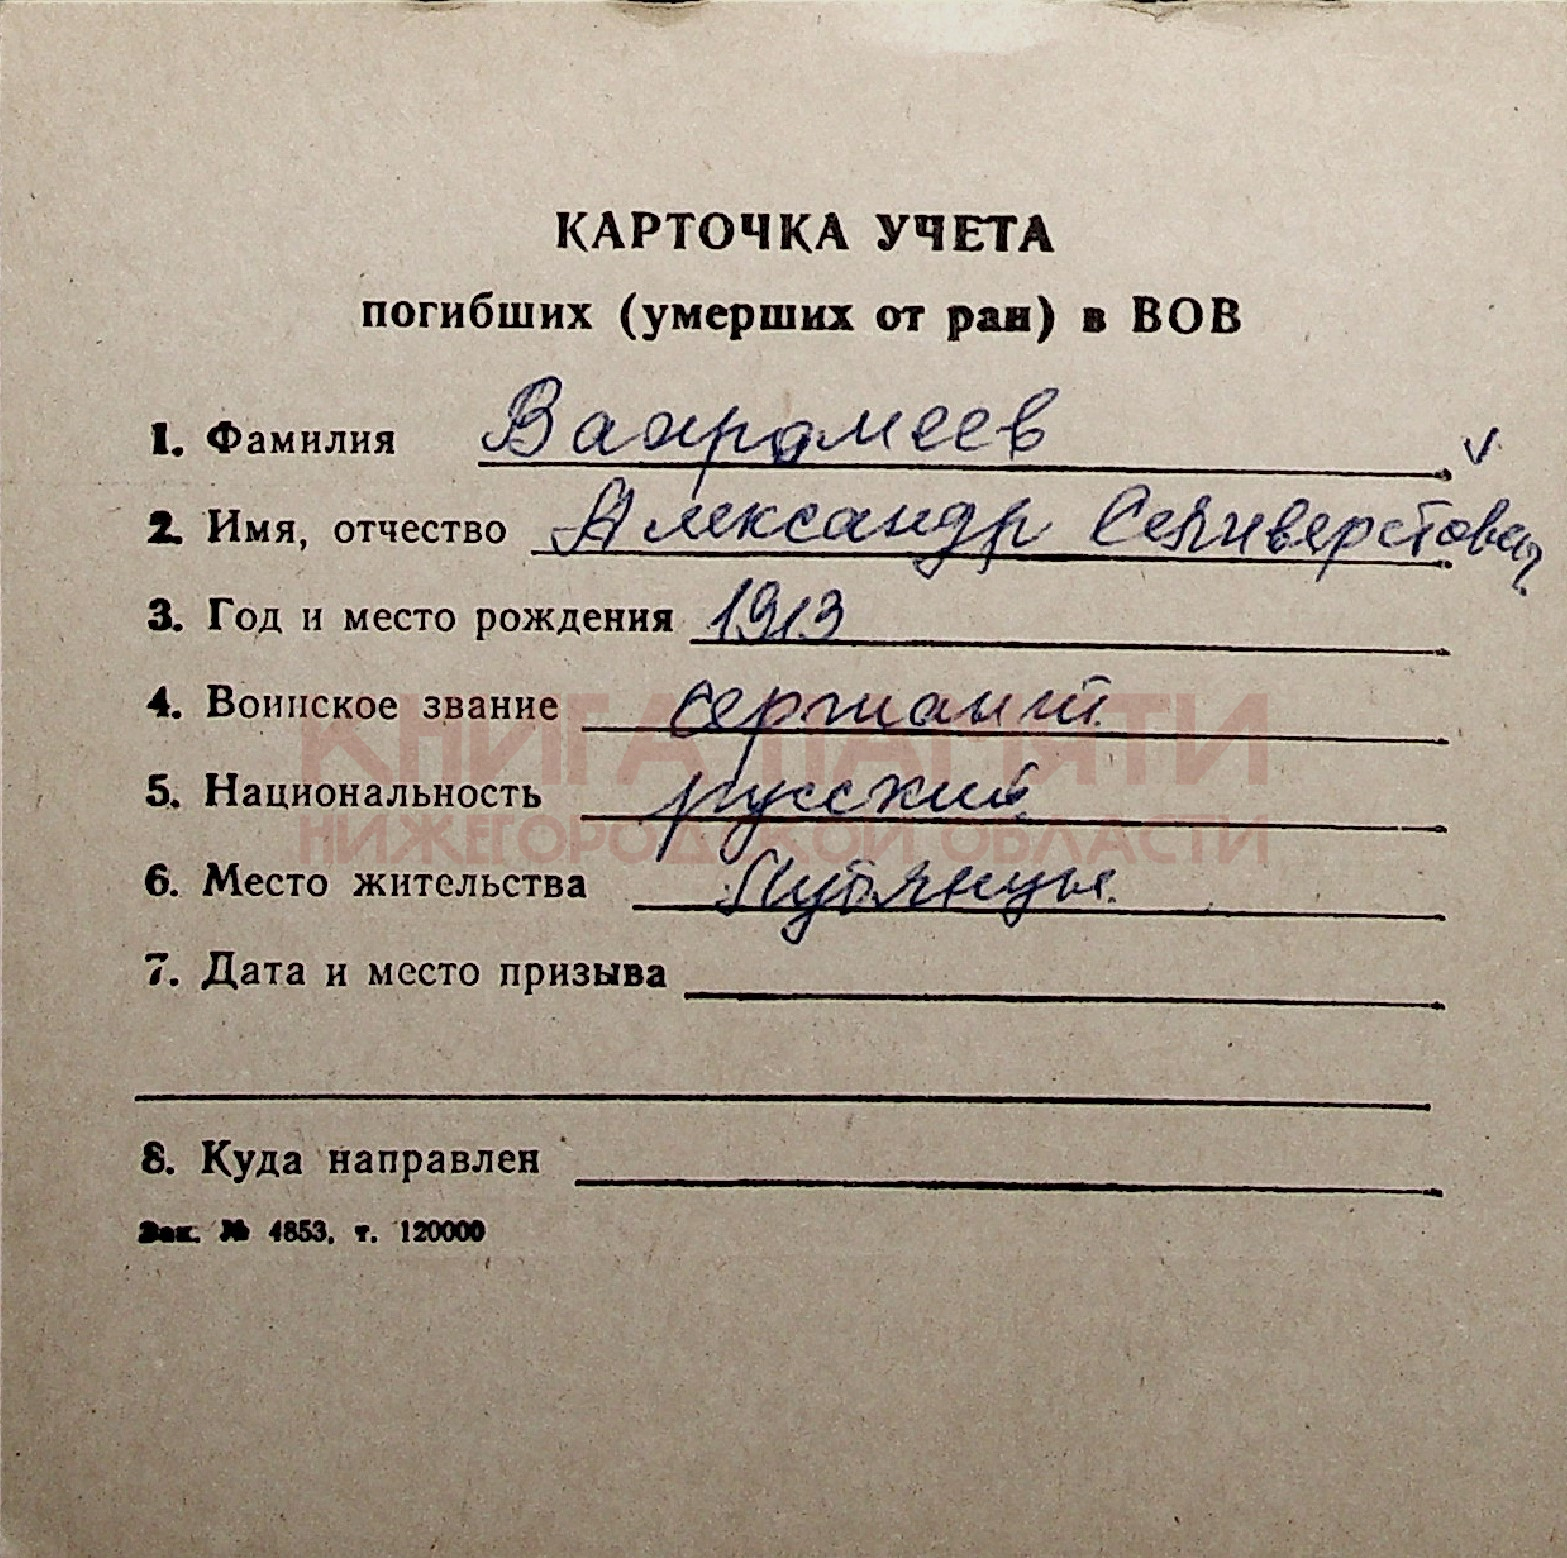 КАРТОЧКА УЧЕТА
погибших (умерших от ран) в ВОВ
1. Фамилия Вахрамеев v
2. Имя, отчество Александр
3. Год и место рождения 1913
4. Воинское звание сержант
КНИГА ПАМЯТИ
5. Национальность русский
НИЖЕГОРОДСКОЙ ОБЛАСТИ
6. Место жительства
7. Дата и место призыва
8. Куда направлен
Зак. № 4853, т. 120000